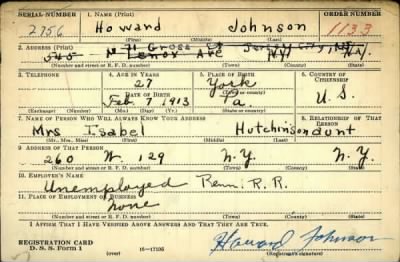 SERIAL NUMBER 1. NAME (Print) ORDER NUMBER
2756 Howard Johnson 1133
(First) (Middle) (Last)
2. ADDRESS (Print)
545 Lenox Ave N.Y. N.Y.
(Number and street or R. F. D. number) (Town) (County) (State)
3. TELEPHONE 4. AGE IN YEARS 5. PLACE OF BIRTH 6. COUNTRY OF CITIZENSHIP
27 York
DATE OF BIRTH (Town or county)
Feb 7 1913 Pa. U.S.
(Exchange) (Number) (Mo.) (Day) (Yr.) (State or country)
7. NAME OF PERSON WHO WILL ALWAYS KNOW YOUR ADDRESS 8. RELATIONSHIP OF THAT PERSON
Mrs Isabel Hutchinson aunt
(Mr., Mrs., Miss) (First) (Middle) (Last)
9. ADDRESS OF THAT PERSON
260 W. 129 N.Y. N.Y.
(Number and street or R. F. D. number) (Town) (County) (State)
10. EMPLOYER'S NAME
Unemployed Penn. R.R.
11. PLACE OF EMPLOYMENT OR BUSINESS
none
(Number and street or R. F. D. number) (Town) (County) (State)
I AFFIRM THAT I HAVE VERIFIED ABOVE ANSWERS AND THAT THEY ARE TRUE.
REGISTRATION CARD
D. S. S. Form 1 (over) 16—17105 Howard Johnson
(Registrant's signature)